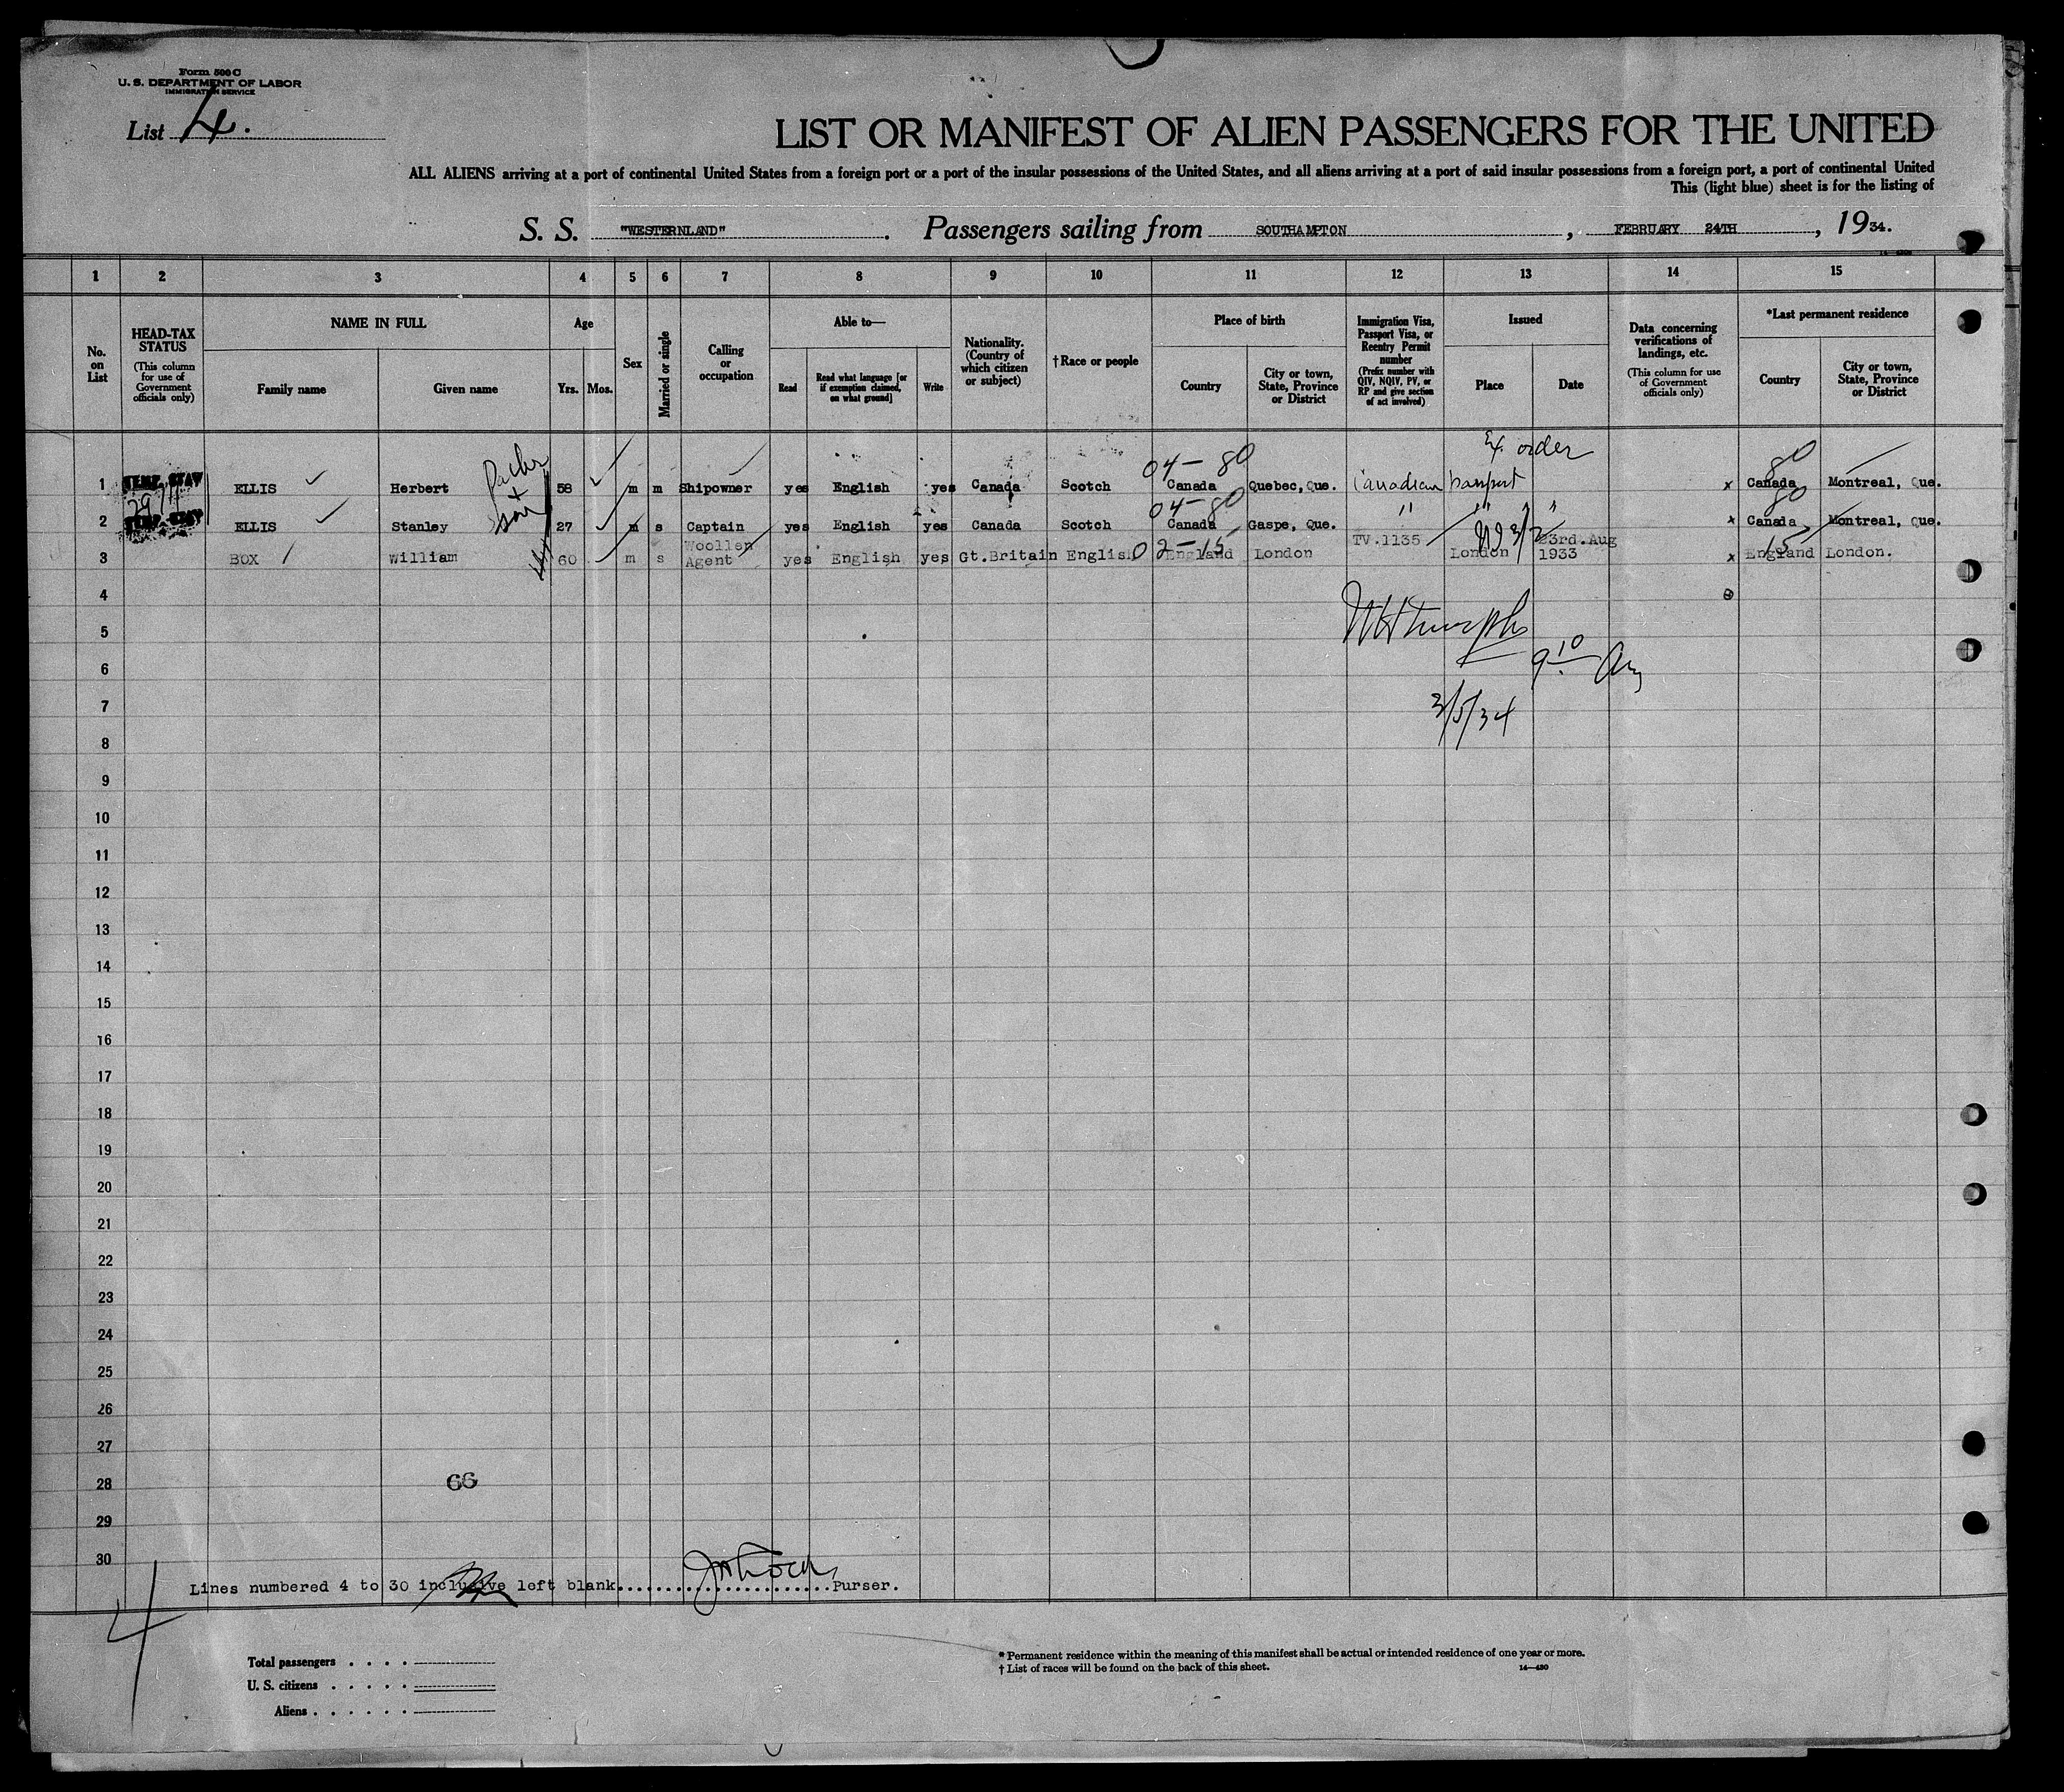 Form 500 C
U. S. DEPARTMENT OF LABOR
IMMIGRATION SERVICE
List 4.
LIST OR MANIFEST OF ALIEN PASSENGERS FOR THE UNITED
ALL ALIENS arriving at a port of continental United States from a foreign port or a port of the insular possessions of the United States, and all aliens arriving at a port of said insular possessions from a foreign port, a port of continental United
This (light blue) sheet is for the listing of
S. S. "WESTERNLAND". Passengers sailing from SOUTHAMPTON, FEBRUARY 24TH, 1934.
1 2 3 4 5 6 7 8 9 10 11 12 13 14 15
No. on List
HEAD-TAX STATUS
(This column for use of Government officials only)
NAME IN FULL
Family name
Given name
Age
Yrs.
Mos.
Sex
Married or single
Calling or occupation
Able to—
Read
Read what language [or if exemption claimed, on what ground]
Write
Nationality. (Country of which citizen or subject)
†Race or people
Place of birth
Country
City or town, State, Province or District
Immigration Visa, Passport Visa, or Reentry Permit number
(Prefix number with QIV, NQIV, PV, or RP and give section of act involved)
Issued
Place
Date
Data concerning verifications of landings, etc.
(This column for use of Government officials only)
*Last permanent residence
Country
City or town, State, Province or District
Ex. order
04-80 80
1 TEMP. STAY ELLIS Herbert 58 m m Shipowner yes English yes Canada Scotch Canada Quebec, Que. Canadian passport x Canada Montreal, Que.
Father + son
04-80 80
2 TEMP. STAY ELLIS Stanley 27 m s Captain yes English yes Canada Scotch Canada Gaspe, Que. " " " " x Canada Montreal, Que.
3 BOX William 60 m s Woollen Agent yes English yes Gt.Britain English 02-15 England London TV.1135 London 23rd.Aug 1933 x England 15 London.
4
5
6
9 10 Am
7
3/5/34
8
9
10
11
12
13
14
15
16
17
18
19
20
21
22
23
24
25
26
27
28 66
29
30
Lines numbered 4 to 30 inclusive left blank......................Purser.
4
Total passengers . . . .
U. S. citizens . . . . .
Aliens . . . . . .
* Permanent residence within the meaning of this manifest shall be actual or intended residence of one year or more.
† List of races will be found on the back of this sheet.
14—480